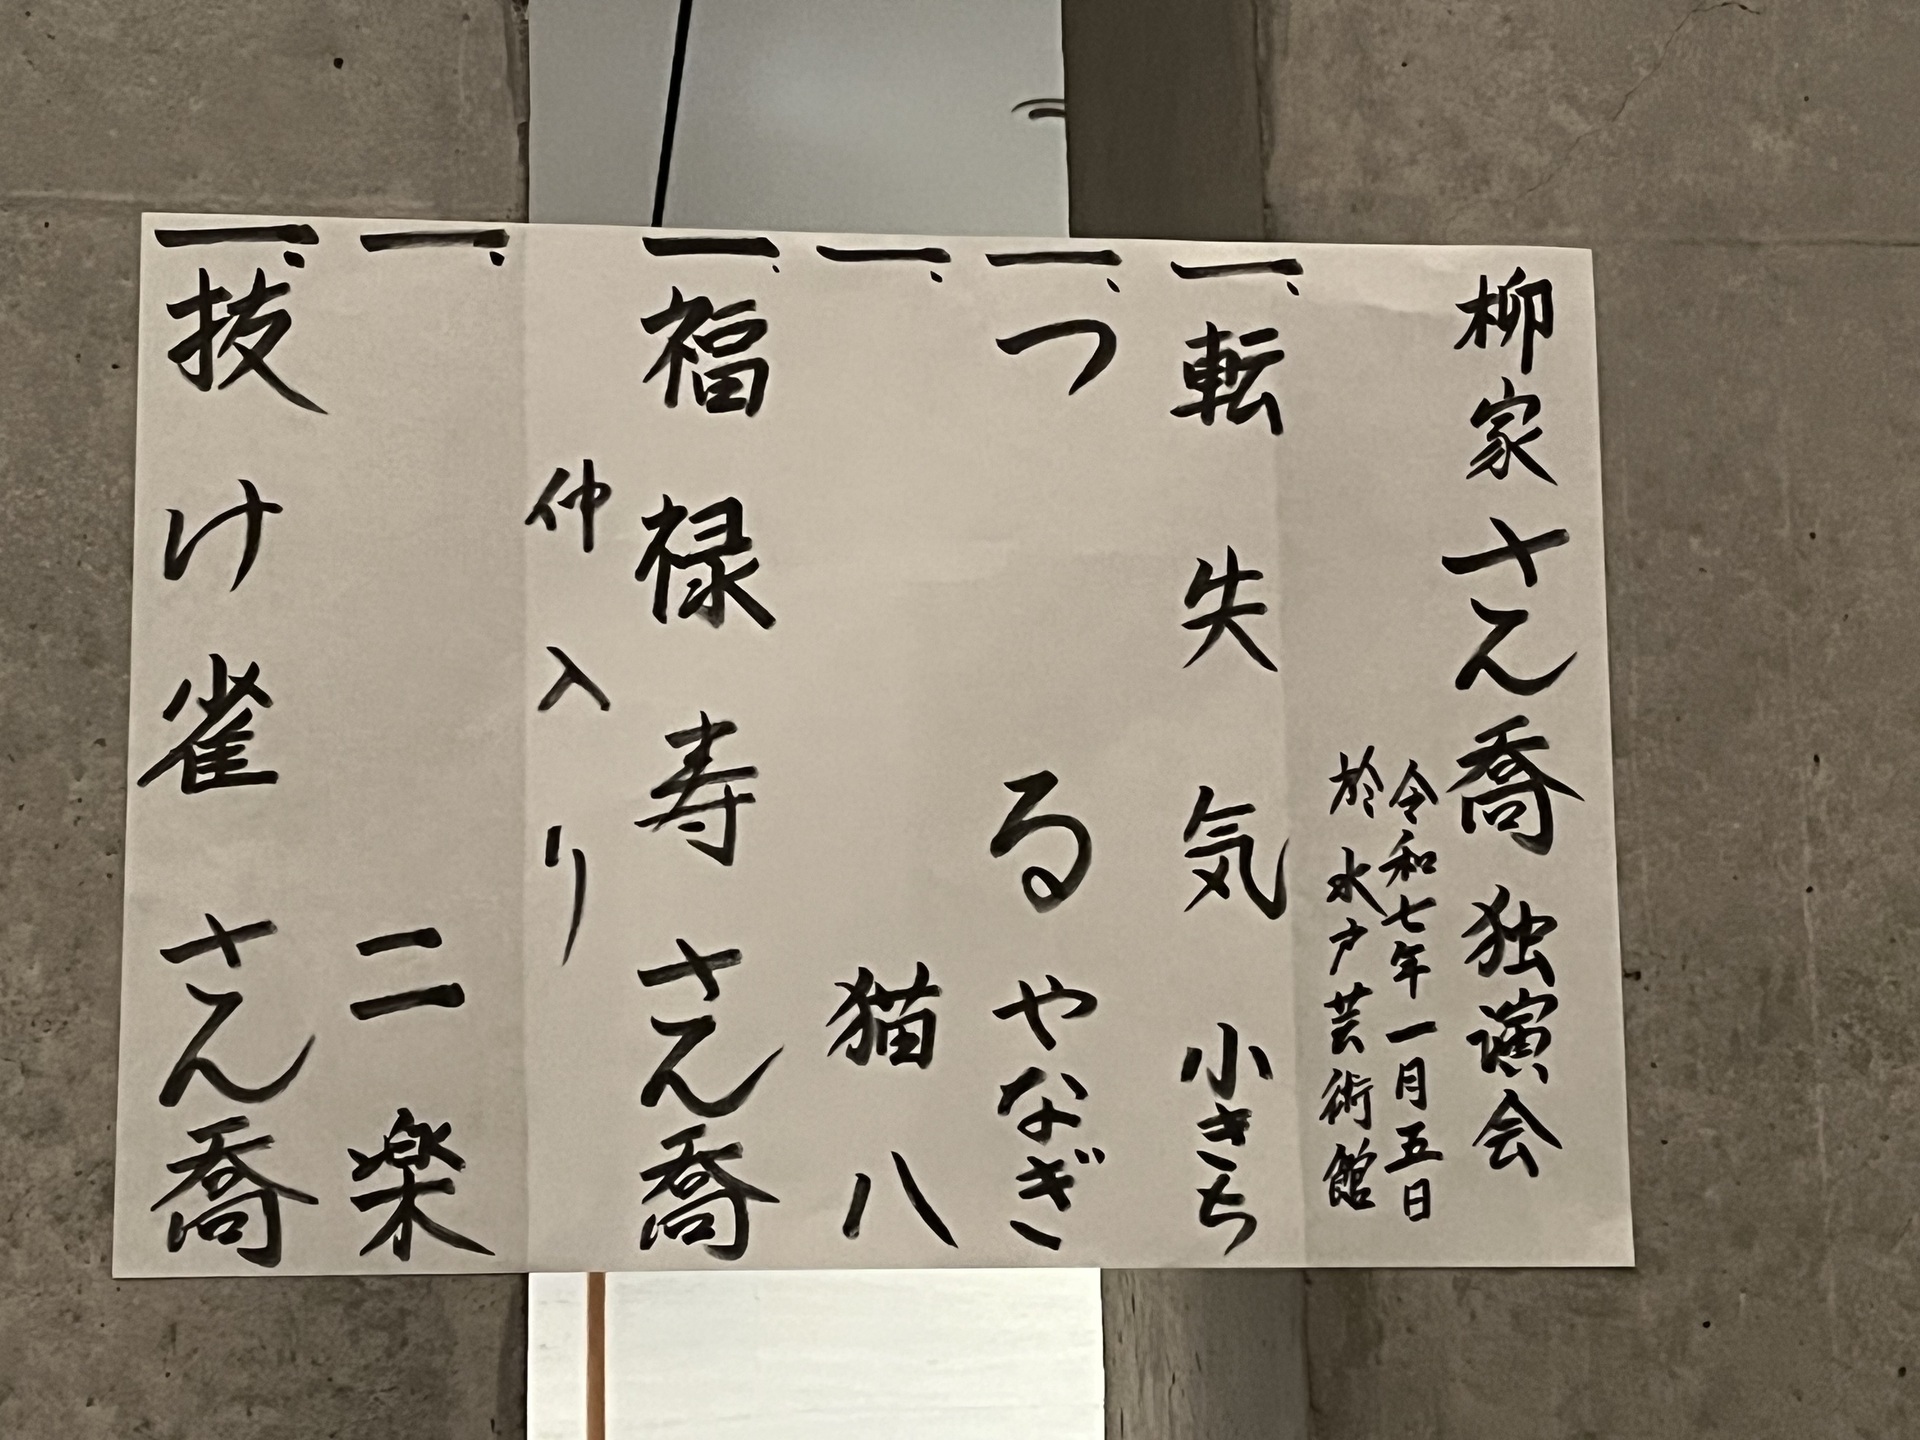 柳家さん喬独演会
令和七年一月五日
於水戸芸術館
一、転失気 小きち
一、つる やなぎ
一、 猫八
一、福禄寿 さん喬
仲入り
一、 二楽
一、技け雀 さん喬